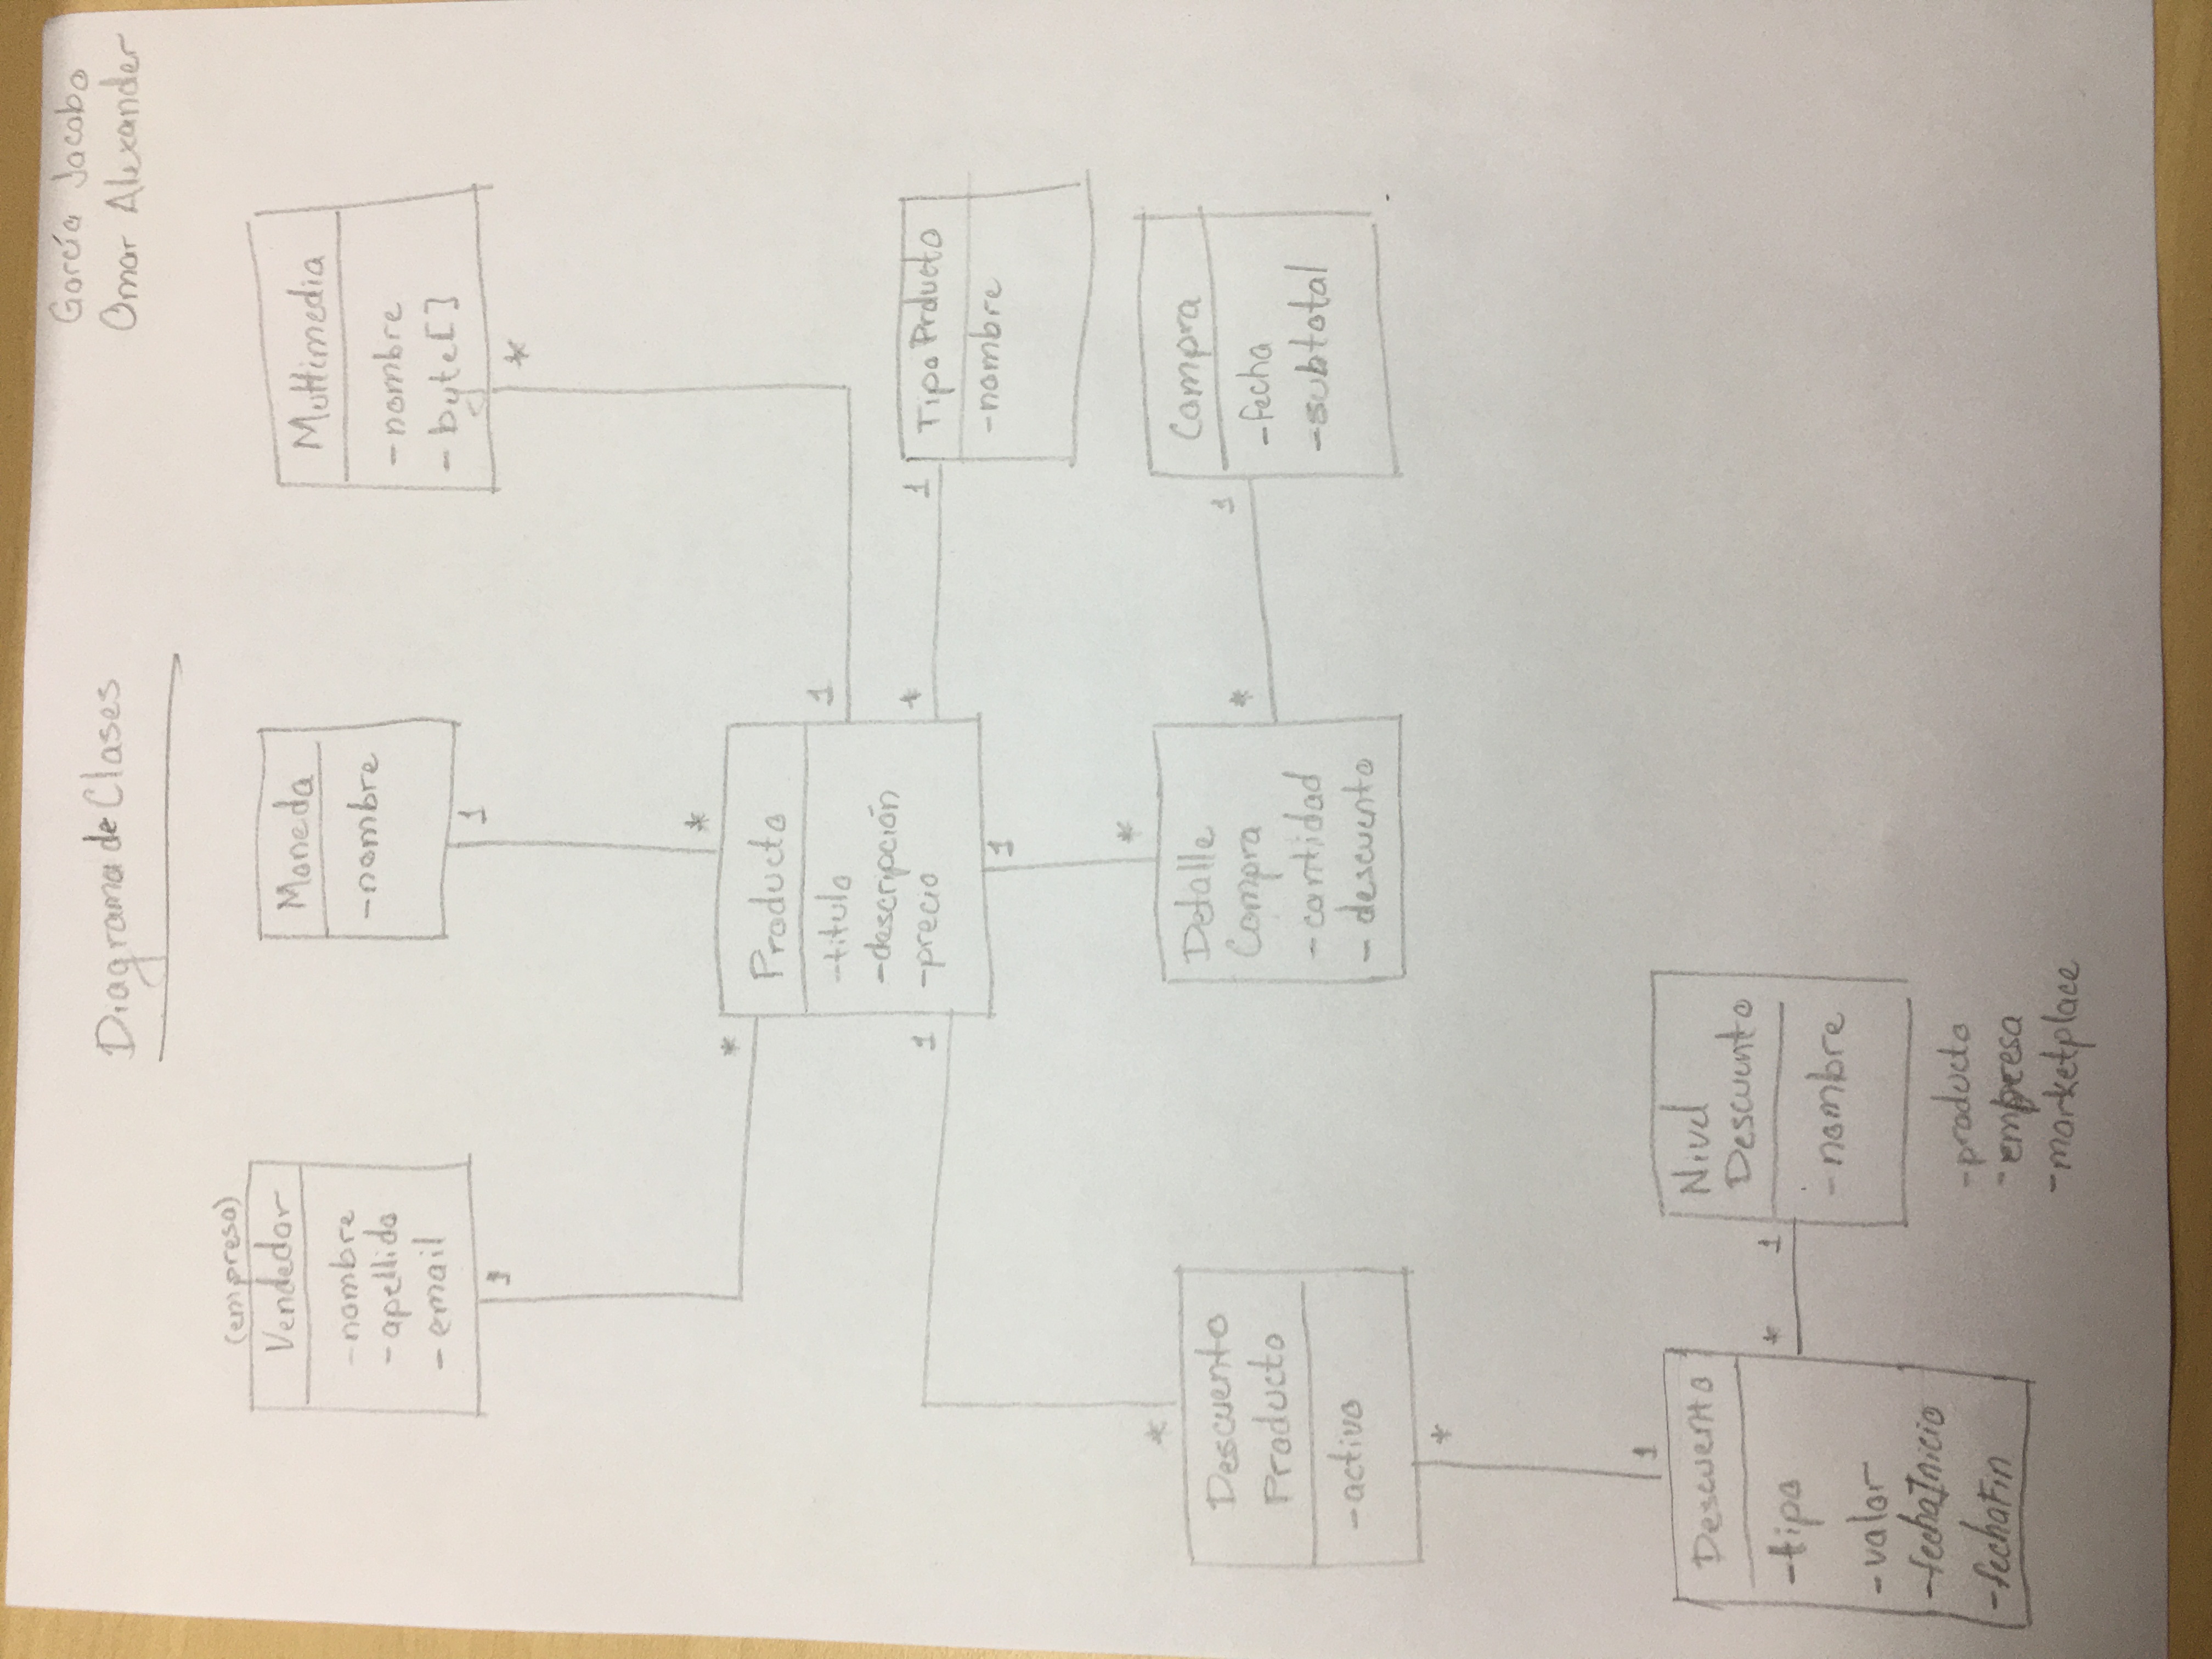 García Jacobo
Omar Alexander
Diagrama de Clases
(empresa)
Vendedor
-nombre
-apellido
-email
1
Moneda
-nombre
1
Multimedia
-nombre
-byte[]
*
*
*
Producto
-titulo
-descripción
-precio
1
*
1
1
1
TipoPrducto
-nombre
*
Descuento
Producto
-activo
*
*
Detalle
Compra
-cantidad
-descuento
*
1
Compra
-fecha
-subtotal
1
Descuento
-tipo
-valor
-fechaInicio
-fechaFin
*
1
Nivel
Descuento
-nombre
-producto
-empresa
-marketplace